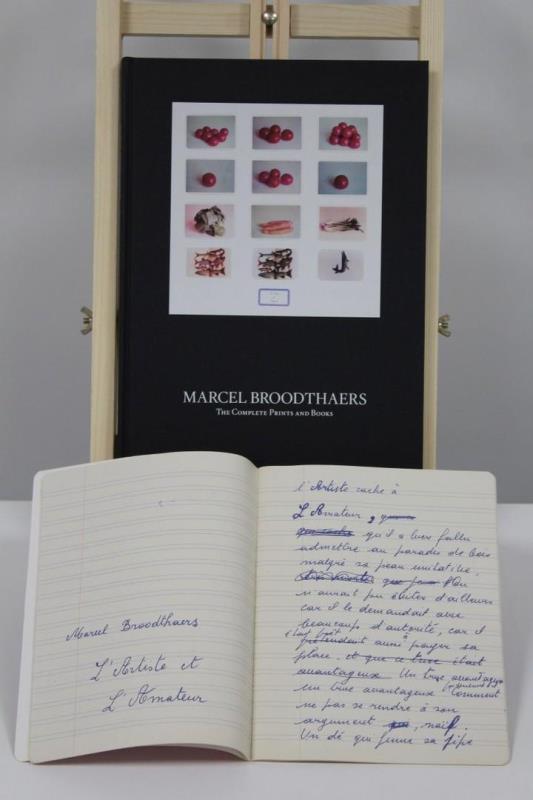 MARCEL BROODTHAERS
THE COMPLETE PRINTS AND BOOKS
Marcel Broodthaers
L'Artiste et
L'Amateur
l'Artiste cache à
L'Amateur
qui cache qu'il a bien fallu
admettre au paradis de
malgré sa peau
On
n'aurait pu d'ailleurs
car il le demandait avec
beaucoup d'autorité, car il
prétendait aussi payer sa
place. et que ce truc était
avantageux. Un truc avantageux
un truc avantageux Comment
ne pas se rendre à son
argument naïf.
Un dé qui fume sa pipe